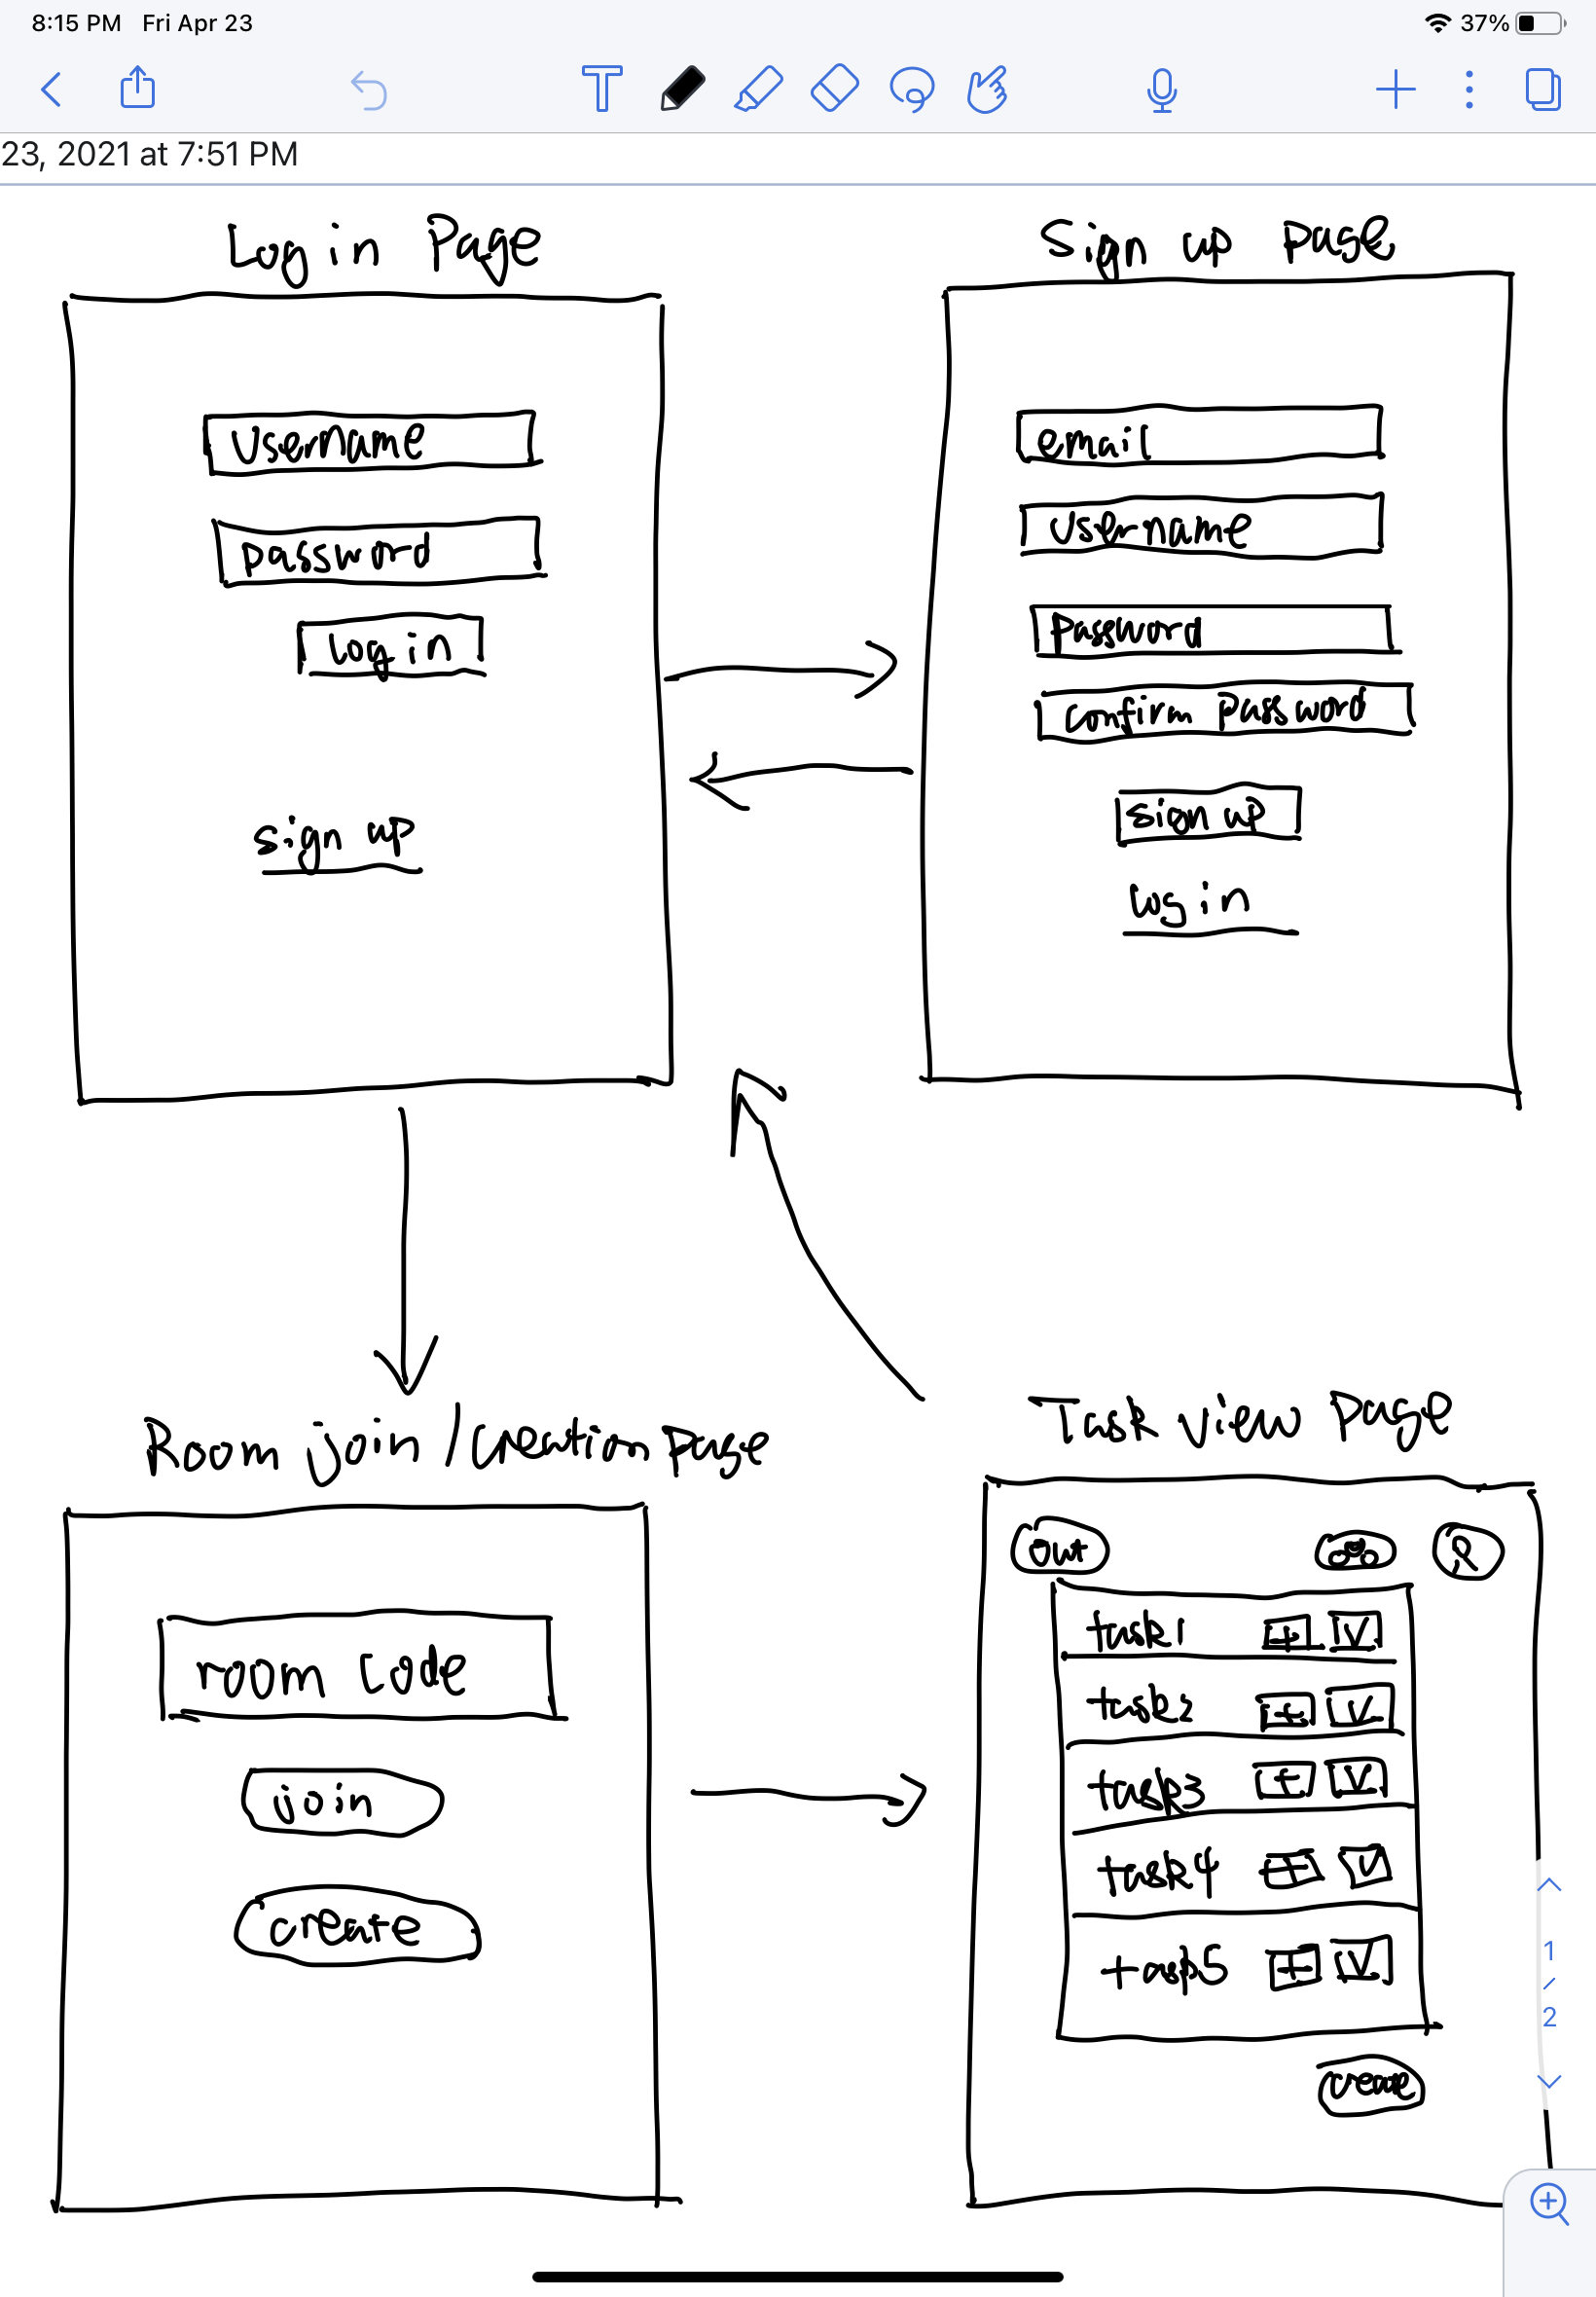 8:15 PM Fri Apr 23
37%
23, 2021 at 7:51 PM
Log in Page
Username
password
log in
sign up
Sign up page
email
Username
Password
confirm password
sign up
log in
Room join / creation page
room code
join
create
Task view page
out
task1 + V
task2 + V
task3 + V
task4 + V
task5 + V
create
1
/
2